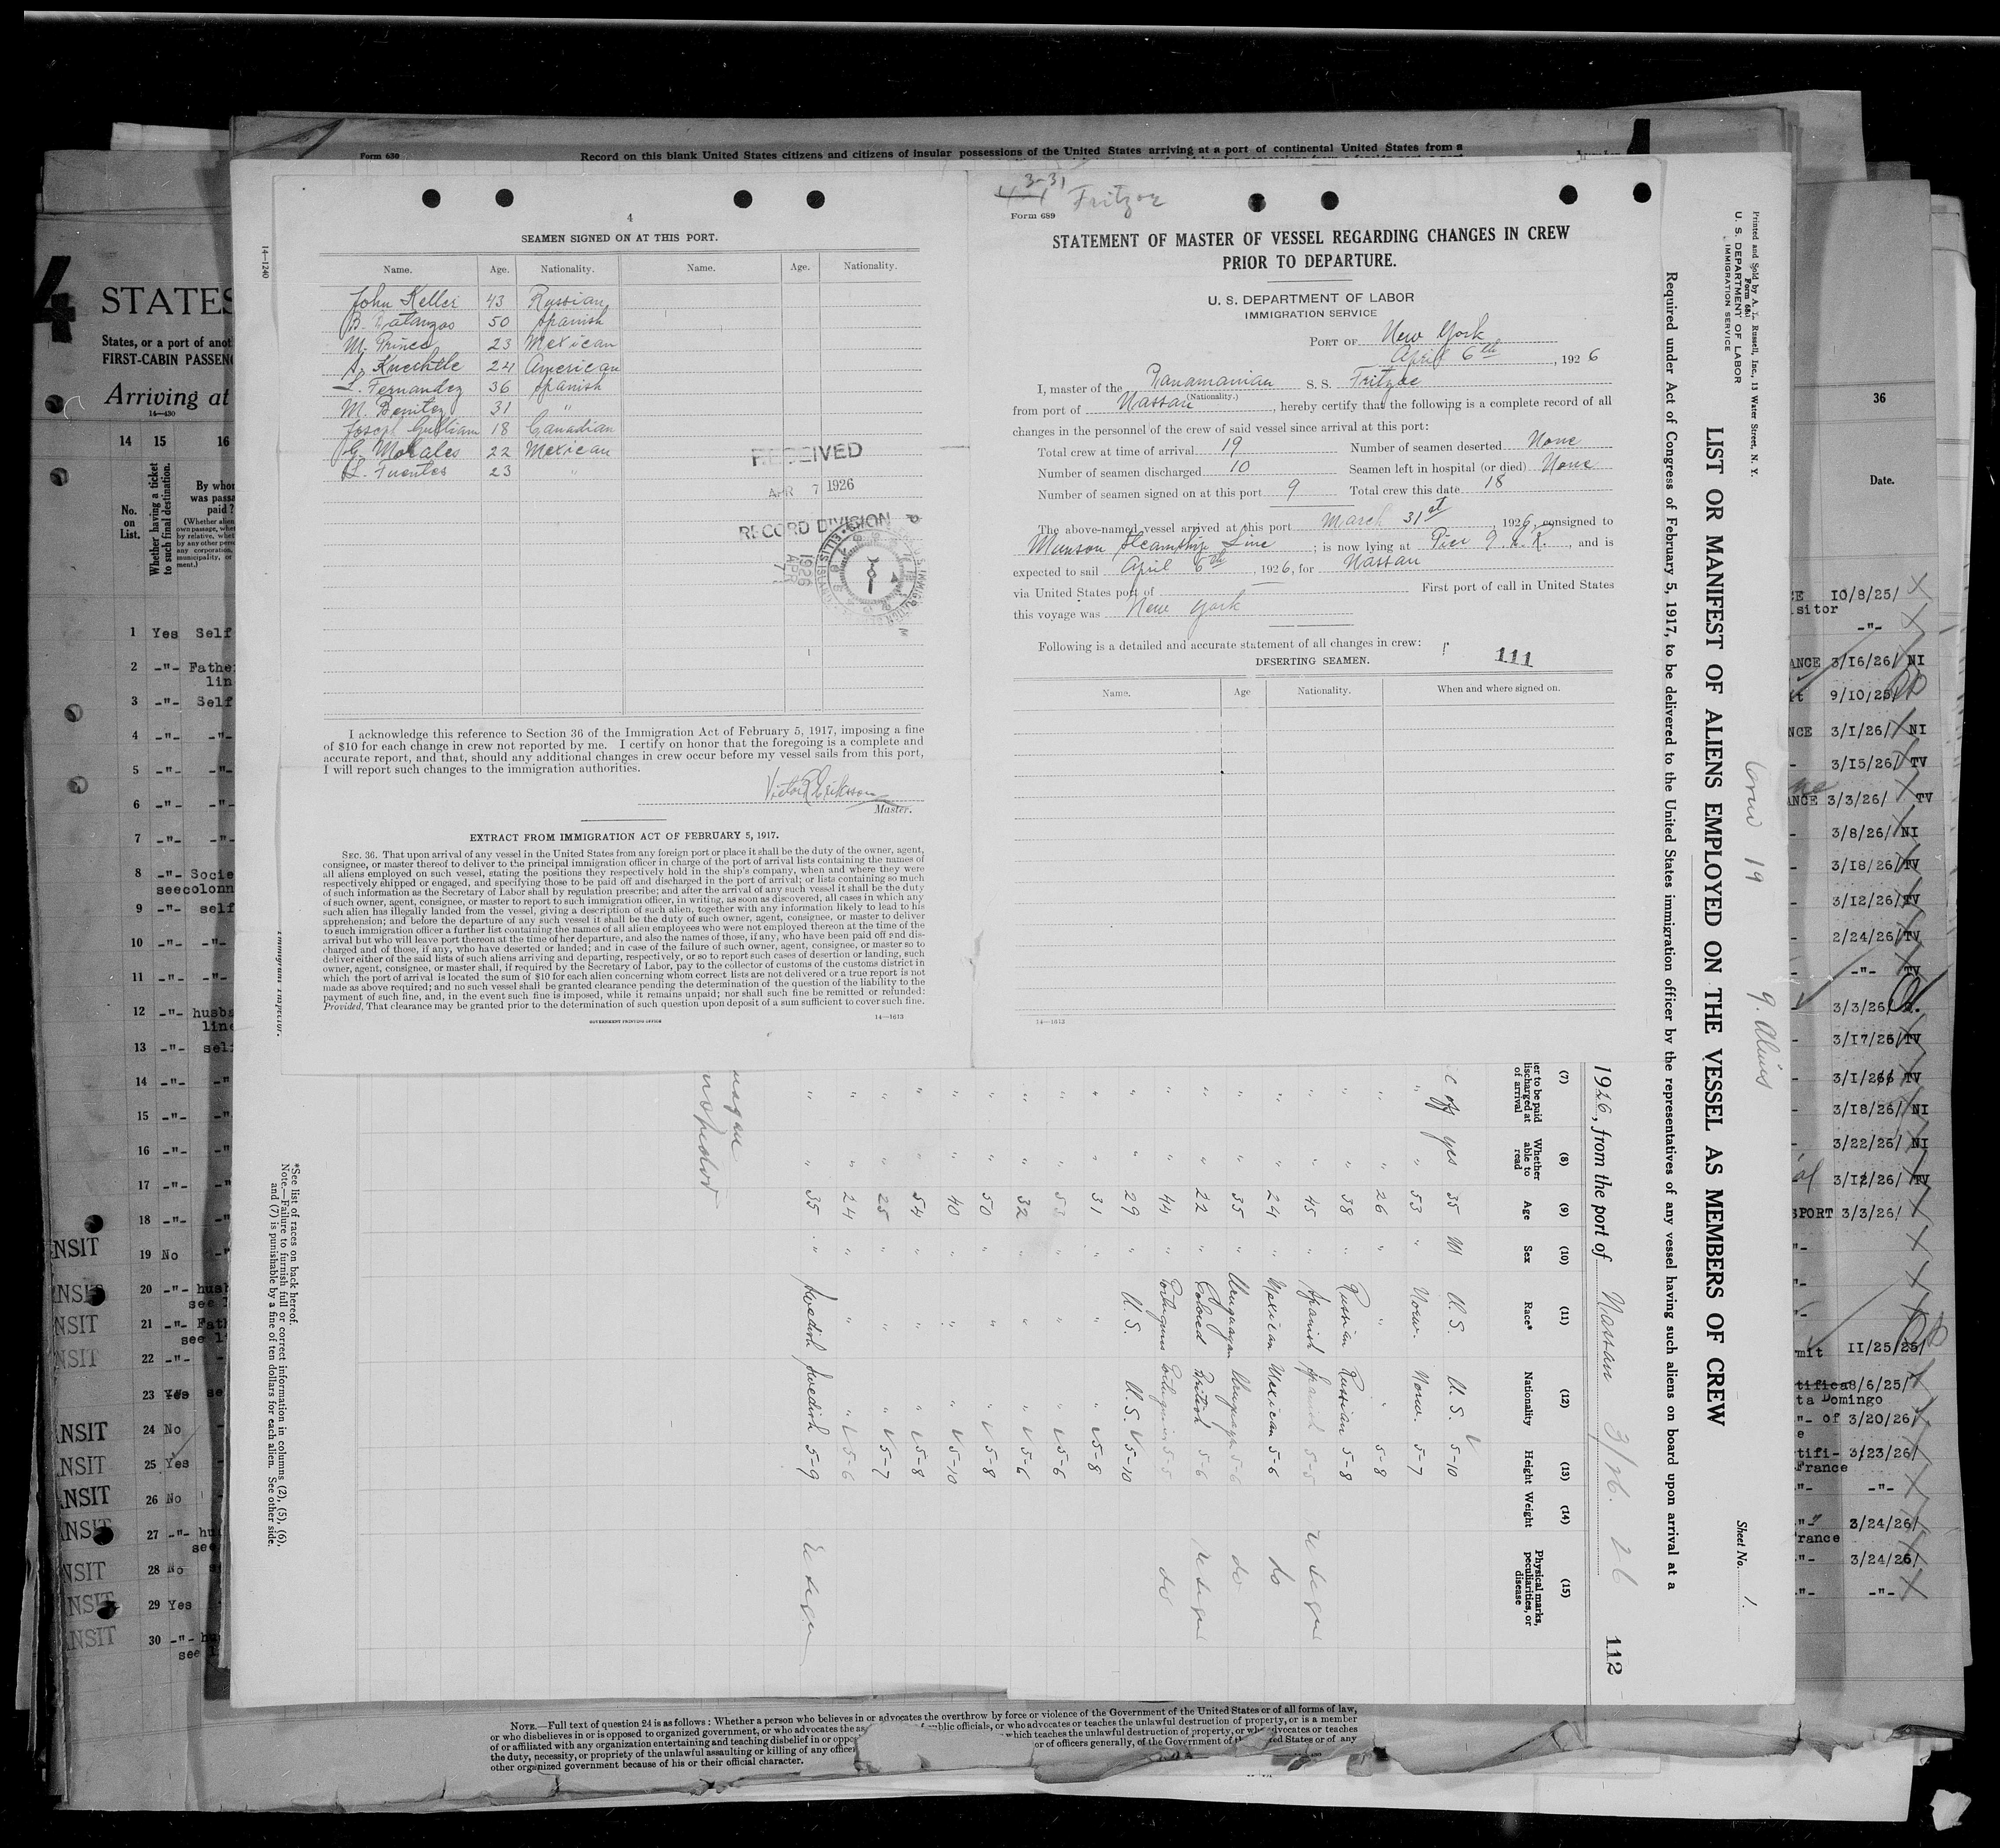 Form 630
Record on this blank United States citizens and citizens of insular possessions of the United States arriving at a port of continental United States from a
4
SEAMEN SIGNED ON AT THIS PORT.
Name. Age. Nationality. Name. Age. Nationality.
John Keller 43 Russian
B. 50 Spanish
M. Prince 23 Mexican
24 American
L. Fernandez 36 Spanish
M. Benitez 31 "
Joseph 18 Canadian
G. Morales 22 Mexican
L. Fuentes 23 "
RECEIVED
APR 7 1926
RECORD DIVISION
1926
APR
7
ELLIS ISLAND
I acknowledge this reference to Section 36 of the Immigration Act of February 5, 1917, imposing a fine
of $10 for each change in crew not reported by me. I certify on honor that the foregoing is a complete and
accurate report, and that, should any additional changes in crew occur before my vessel sails from this port,
I will report such changes to the immigration authorities.
Victor Erikson
Master.
EXTRACT FROM IMMIGRATION ACT OF FEBRUARY 5, 1917.
SEC. 36. That upon arrival of any vessel in the United States from any foreign port or place it shall be the duty of the owner, agent,
consignee, or master thereof to deliver to the principal immigration officer in charge of the port of arrival lists containing the names of
all aliens employed on such vessel, stating the positions they respectively hold in the ship's company, when and where they were
respectively shipped or engaged, and specifying those to be paid off and discharged in the port of arrival; or lists containing so much
of such information as the Secretary of Labor shall by regulation prescribe; and after the arrival of any such vessel it shall be the duty
of such owner, agent, consignee, or master to report to such immigration officer, in writing, as soon as discovered, all cases in which any
such alien has illegally landed from the vessel, giving a description of such alien, together with any information likely to lead to his
apprehension; and before the departure of any such vessel it shall be the duty of such owner, agent, consignee, or master to deliver
to such immigration officer a further list containing the names of all alien employees who were not employed thereon at the time of the
arrival but who will leave port thereon at the time of her departure, and also the names of those, if any, who have been paid off and dis-
charged and of those, if any, who have deserted or landed; and in case of the failure of such owner, agent, consignee, or master so to
deliver either of the said lists of such aliens arriving and departing, respectively, or so to report such cases of desertion or landing, such
owner, agent, consignee, or master shall, if required by the Secretary of Labor, pay to the collector of customs of the customs district in
which the port of arrival is located the sum of $10 for each alien concerning whom correct lists are not delivered or a true report is not
made as above required; and no such vessel shall be granted clearance pending the determination of the question of the liability to the
payment of such fine, and, in the event such fine is imposed, while it remains unpaid; nor shall such fine be remitted or refunded:
Provided, That clearance may be granted prior to the determination of such question upon deposit of a sum sufficient to cover such fine.
GOVERNMENT PRINTING OFFICE 14—1613
14—1240
Immigrant Inspector.
3-31
4-1 Fritzoe
Form 689
STATEMENT OF MASTER OF VESSEL REGARDING CHANGES IN CREW
PRIOR TO DEPARTURE.
U. S. DEPARTMENT OF LABOR
IMMIGRATION SERVICE
PORT OF New York
April 6th, 1926
I, master of the Panamanian S. S. Fritzoe
(Nationality.)
from port of Nassau, hereby certify that the following is a complete record of all
changes in the personnel of the crew of said vessel since arrival at this port:
Total crew at time of arrival 19 Number of seamen deserted None
Number of seamen discharged 10 Seamen left in hospital (or died) None
Number of seamen signed on at this port 9 Total crew this date 18
The above-named vessel arrived at this port March 31st, 1926, consigned to
Munson Steamship Line; is now lying at Pier 9. E. R., and is
expected to sail April 6th, 1926, for Nassau
via United States port of First port of call in United States
this voyage was New York
Following is a detailed and accurate statement of all changes in crew:
111
DESERTING SEAMEN.
Name. Age Nationality. When and where signed on.
14—1613
Printed and Sold by A. L. Russell, Inc., 13 Water Street, N. Y.
Form 681
U. S. DEPARTMENT OF LABOR
IMMIGRATION SERVICE
Crew 19 9. Aliens
Sheet No. 1.
LIST OR MANIFEST OF ALIENS EMPLOYED ON THE VESSEL AS MEMBERS OF CREW
Required under Act of Congress of February 5, 1917, to be delivered to the United States immigration officer by the representatives of any vessel having such aliens on board upon arrival at a
1926, from the port of Nassau 3/26. 26
112
(7) (8) (9) (10) (11) (12) (13) (14) (15)
Whether able to read
Age
Sex
Race*
Nationality
Height
Weight
Physical marks, peculiarities, or disease
off yes 35 M U. S. U. S. 5-10
" " 53 " Norw. Norw. 5-7
" " 26 " " " 5-8
" " 38 " Russian Russian 5-8
" " 45 " Spanish Spanish 5-5
" " 24 " Mexican Mexican 5-6 do
" " 35 " Uruguayan Uruguayan 5-6 do
" " 22 " Colored British 5-6
" " 44 " Portuguese Portuguese 5-5 do
" " 29 " U. S. U. S. 5-10
" " 31 " " " 5-8
" " 53 " " " 5-6
" " 32 " " " 5-6
" " 50 " " " 5-8
" " 40 " " " 5-10
" " 54 " " " 5-8
" " 25 " " " 5-7
" " 24 " " " 5-6
" " 35 " Swedish Swedish 5-9
*See list of races on back hereof.
Note.—Failure to furnish full or correct information in columns (2), (5), (6),
and (7) is punishable by a fine of ten dollars for each alien. See other side.
4
STATES
States, or a port of anot
FIRST-CABIN PASSEN
Arriving at
14—430
14 15 16
No. on List.
Whether having a ticket to such final destination.
By whom was passage paid?
1 Yes Self
2 -"- Father
3 -"- Self
4 -"- -"-
5 -"- -"-
6 -"- -"-
7 -"- -"-
8 -"- Socie
see colonn
9 -"- self
10 -"- -"-
11 -"- -"-
12 -"- husba
line
13 -"- self
14 -"- -"
15 -"-
16 -"-
17 -"-
18 -"-
NSIT 19 No
NSIT 20 -"- husb
see
NSIT 21 -"- Fath
see l
NSIT 22 -"-
23 Yes se
ANSIT 24 No
ANSIT 25 Yes
ANSIT 26 No
ANSIT 27 -"- hu
see
NSIT 28 No
NSIT 29 Yes
NSIT 30 -"- hu
see l
36
Date.
10/8/25/
isitor
-"-
ANCE 3/16/26/ NI
9/10/25/
NCE 3/1/26/ NI
3/15/26/ TV
ANCE 3/3/26/ TV
3/8/26/ NI
3/18/26/ TV
3/12/26/ TV
2/24/26/ TV
-"- TV
3/3/26/
3/17/26/ TV
3/1/26 TV
3/18/26/ NI
3/22/26/ NI
3/12/26/ TV
SPORT 3/3/26/
mit 11/25/25/
tifica 8/6/25/
ta Domingo
-"- of 3/20/26/
tifi- 3/23/26/
France
-"- -"-
-"- 3/24/26/
rance
-"- 3/24/26/
-"- -"-
NOTE.—Full text of question 24 is as follows: Whether a person who believes in or advocates the overthrow by force or violence of the Government of the United States or of all forms of law,
or who disbelieves in or is opposed to organized government, or who advocates the as public officials, or who advocates or teaches the unlawful destruction of property, or is a member
of or affiliated with any organization entertaining and teaching disbelief in or oppos which teaches the unlawful destruction of property, or who advocates or teaches
the duty, necessity, or propriety of the unlawful assaulting or killing of any officer or of officers generally, of the Government of the United States or of any
other organized government because of his or their official character.